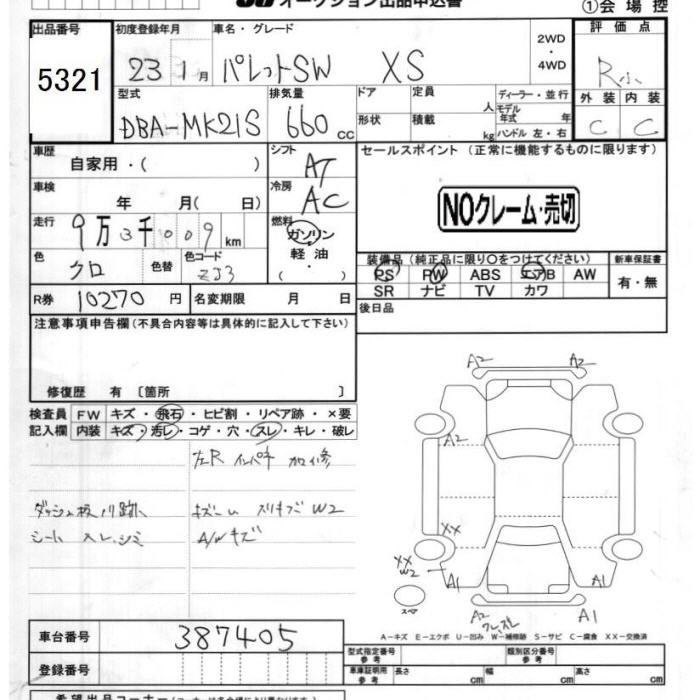 オークション出品申込書
①会場控
出品番号 初度登録年月 車名・グレード 2WD ・ 4WD 評価点
5321 23 1月 パレットSW XS R小
外装 内装
C C
型式 排気量 ドア 定員 人 ディーラー・並行
DBA-MK21S 660 cc 形状 積載 kg モデル年式 年
ハンドル 左・右
車歴 自家用・( ) シフト AT セールスポイント (正常に機能するものに限ります)
車検 年 月( 日) 冷房 AC
NOクレーム・売切
走行 9万3千009km 燃料 ガソリン・軽油・( )
色 クロ 色替 色コード ZJ3
装備品 (純正品に限り○をつけてください) 新車保証書
PS PW ABS エアB AW 有・無
SR ナビ TV カワ
R券 10270円 名変期限 月 日 後日品
注意事項申告欄(不具合内容等は具体的に記入して下さい)
修復歴 有 〔箇所 〕
検査員 FW キズ・飛石・ヒビ割・リペア跡・×要
記入欄 内装 キズ・汚レ・コゲ・穴・スレ・キレ・破レ
左R インパネ 加修
キズ
W2
シート スレ、シミ A/Wキズ
A2 A2
A2
XX
XX
W2
A1 A1
スペア
A2 A1
A-キズ E-エクボ U-凹み W-補修跡 S-サビ C-腐食 XX-交換済
車台番号 387405
登録番号
型式指定番号 参考 類別区分番号 参考
車庫証明用 参考 長さ cm 幅 cm 高さ cm
希望出品コーナー